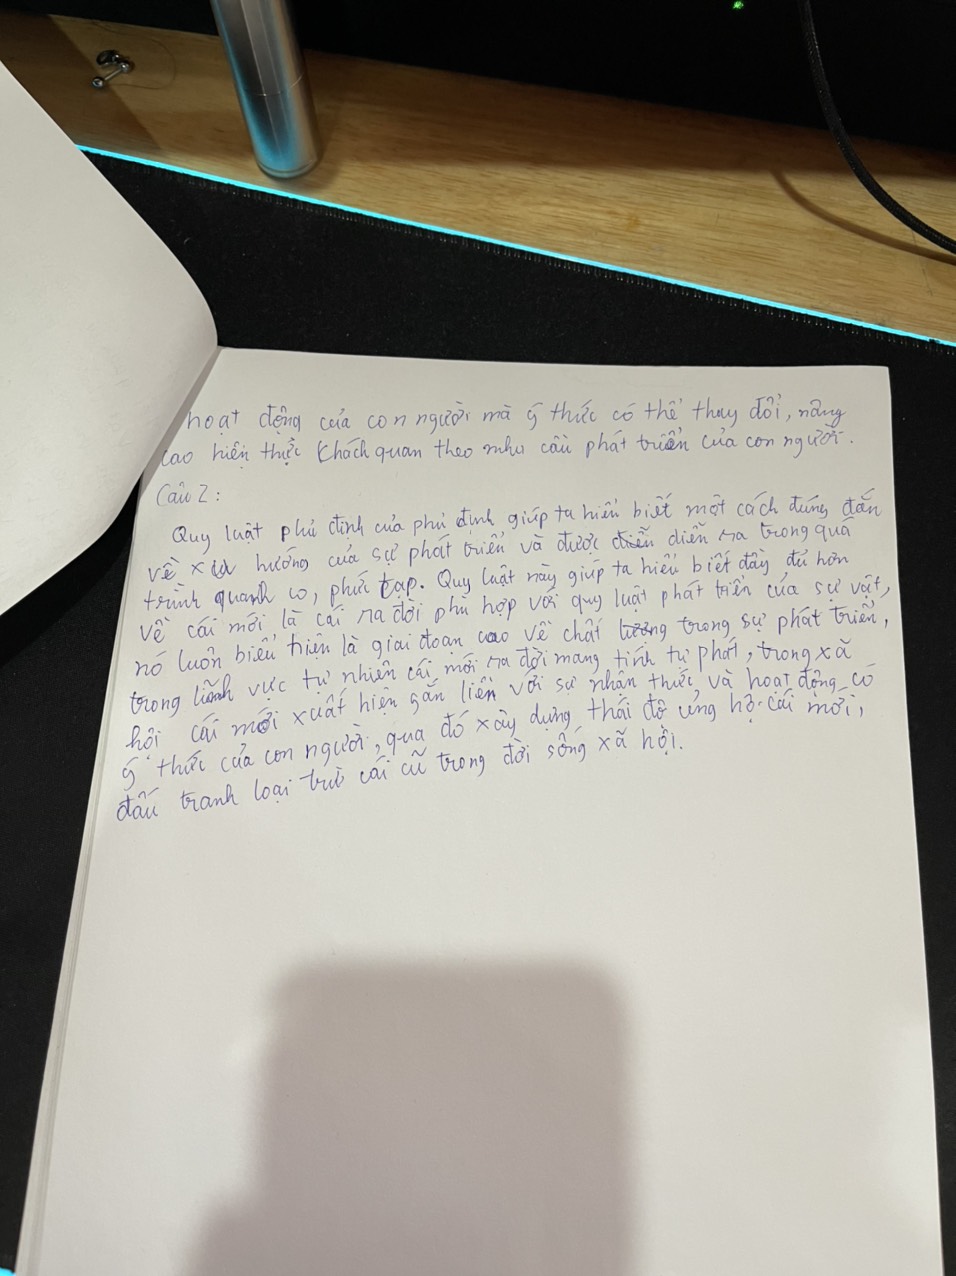 hoạt động của con người mà ý thức có thể thay đổi, nâng
cao hiện thực khách quan theo nhu cầu phát triển của con người.
Câu 2:
Quy luật phủ định của phủ định giúp ta hiểu biết một cách đúng đắn
về xu hướng của sự phát triển và được diễn ra trong quá
trình quanh co, phức tạp. Quy luật này giúp ta hiểu biết đầy đủ hơn
về cái mới là cái ra đời phù hợp với quy luật phát triển của sự vật,
nó luôn biểu hiện là giai đoạn cao về chất lượng trong sự phát triển,
trong lĩnh vực tự nhiên cái mới ra đời mang tính tự phát, trong xã
hội cái mới xuất hiện gắn liền với sự nhận thức và hoạt động có
ý thức của con người, qua đó xây dựng thái độ ủng hộ cái mới,
đấu tranh loại trừ cái cũ trong đời sống xã hội.